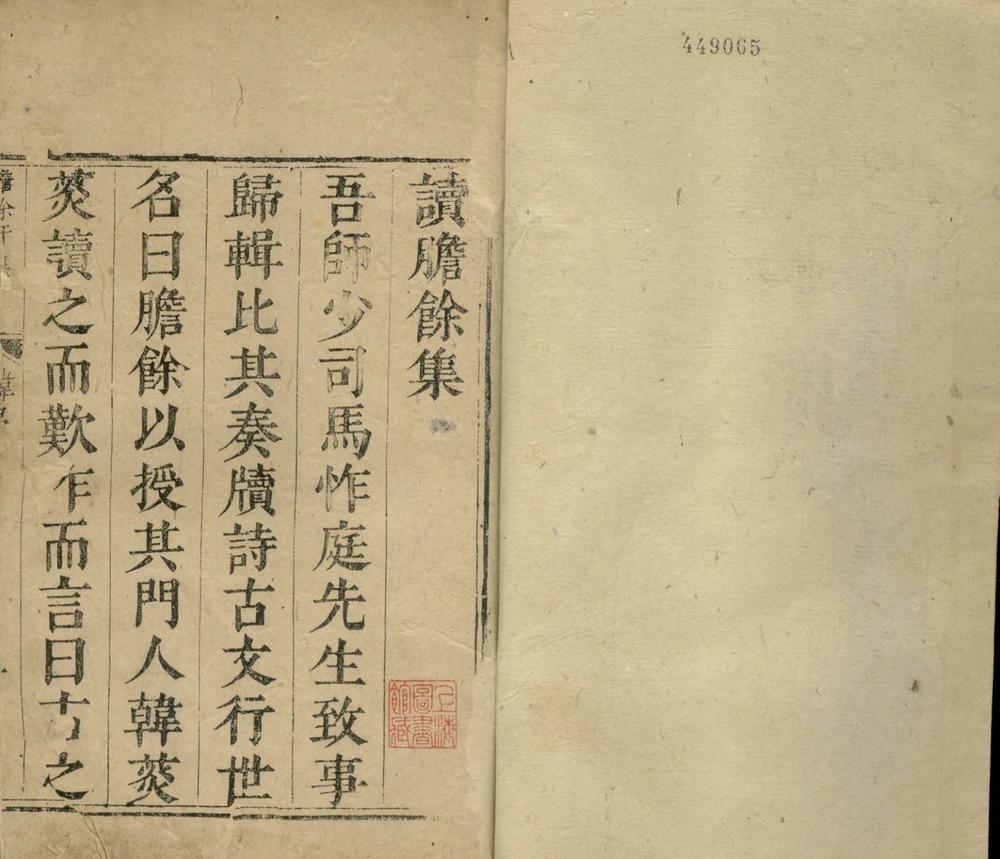 449065
讀膽餘集
吾師少司馬怍庭先生致事
歸輯比其奏牘詩古文行世
名曰膽餘以授其門人韓菼
菼讀之而歎乍而言曰古之
上海圖書館藏